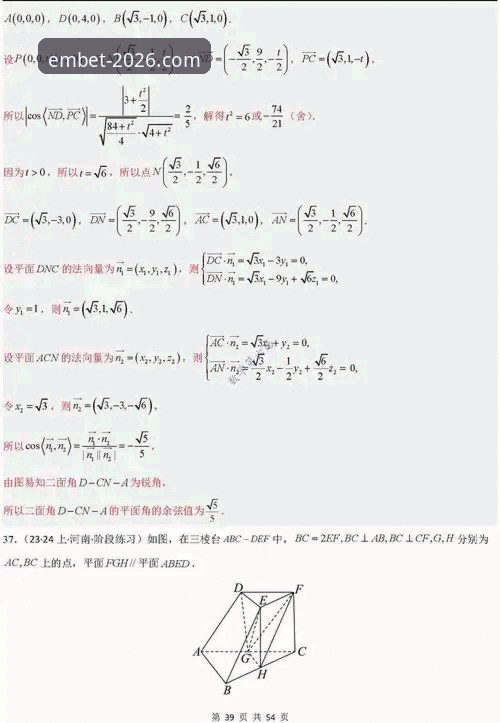 A(0,0,0), D(0,4,0), B(√3,-1,0), C(√3,1,0).
设P(0,0,
embet-2026.com
ND=(-√3/2,9/2,-t/2), PC=(√3,1,-t),
所以|cos⟨ND,PC⟩|=|3+t²/2|/(√((84+t²)/4)·√(4+t²))=2/5, 解得t²=6或-74/21(舍).
因为t>0, 所以t=√6, 所以点N(√3/2,-1/2,√6/2),
DC=(√3,-3,0), DN=(√3/2,-9/2,√6/2), AC=(√3,1,0), AN=(√3/2,-1/2,√6/2).
设平面DNC的法向量为n₁=(x₁,y₁,z₁), 则{DC·n₁=√3x₁-3y₁=0,
DN·n₁=√3x₁-9y₁+√6z₁=0,
令y₁=1, 则n₁=(√3,1,√6).
设平面ACN的法向量为n₂=(x₂,y₂,z₂), 则{AC·n₂=√3x₂+y₂=0,
AN·n₂=√3/2x₂-1/2y₂+√6/2z₂=0,
令x₂=√3, 则n₂=(√3,-3,-√6),
所以cos⟨n₁,n₂⟩=n₁·n₂/|n₁||n₂|=-√5/5,
由图易知二面角D-CN-A为锐角,
所以二面角D-CN-A的平面角的余弦值为√5/5.
37.(23·24上·河南·阶段练习)如图,在三棱台ABC-DEF中, BC=2EF,BC⊥AB,BC⊥CF,G,H分别为
AC,BC上的点,平面FGH//平面ABED.
D
F
E
A
G
C
H
B
第 39 页 共 54 页